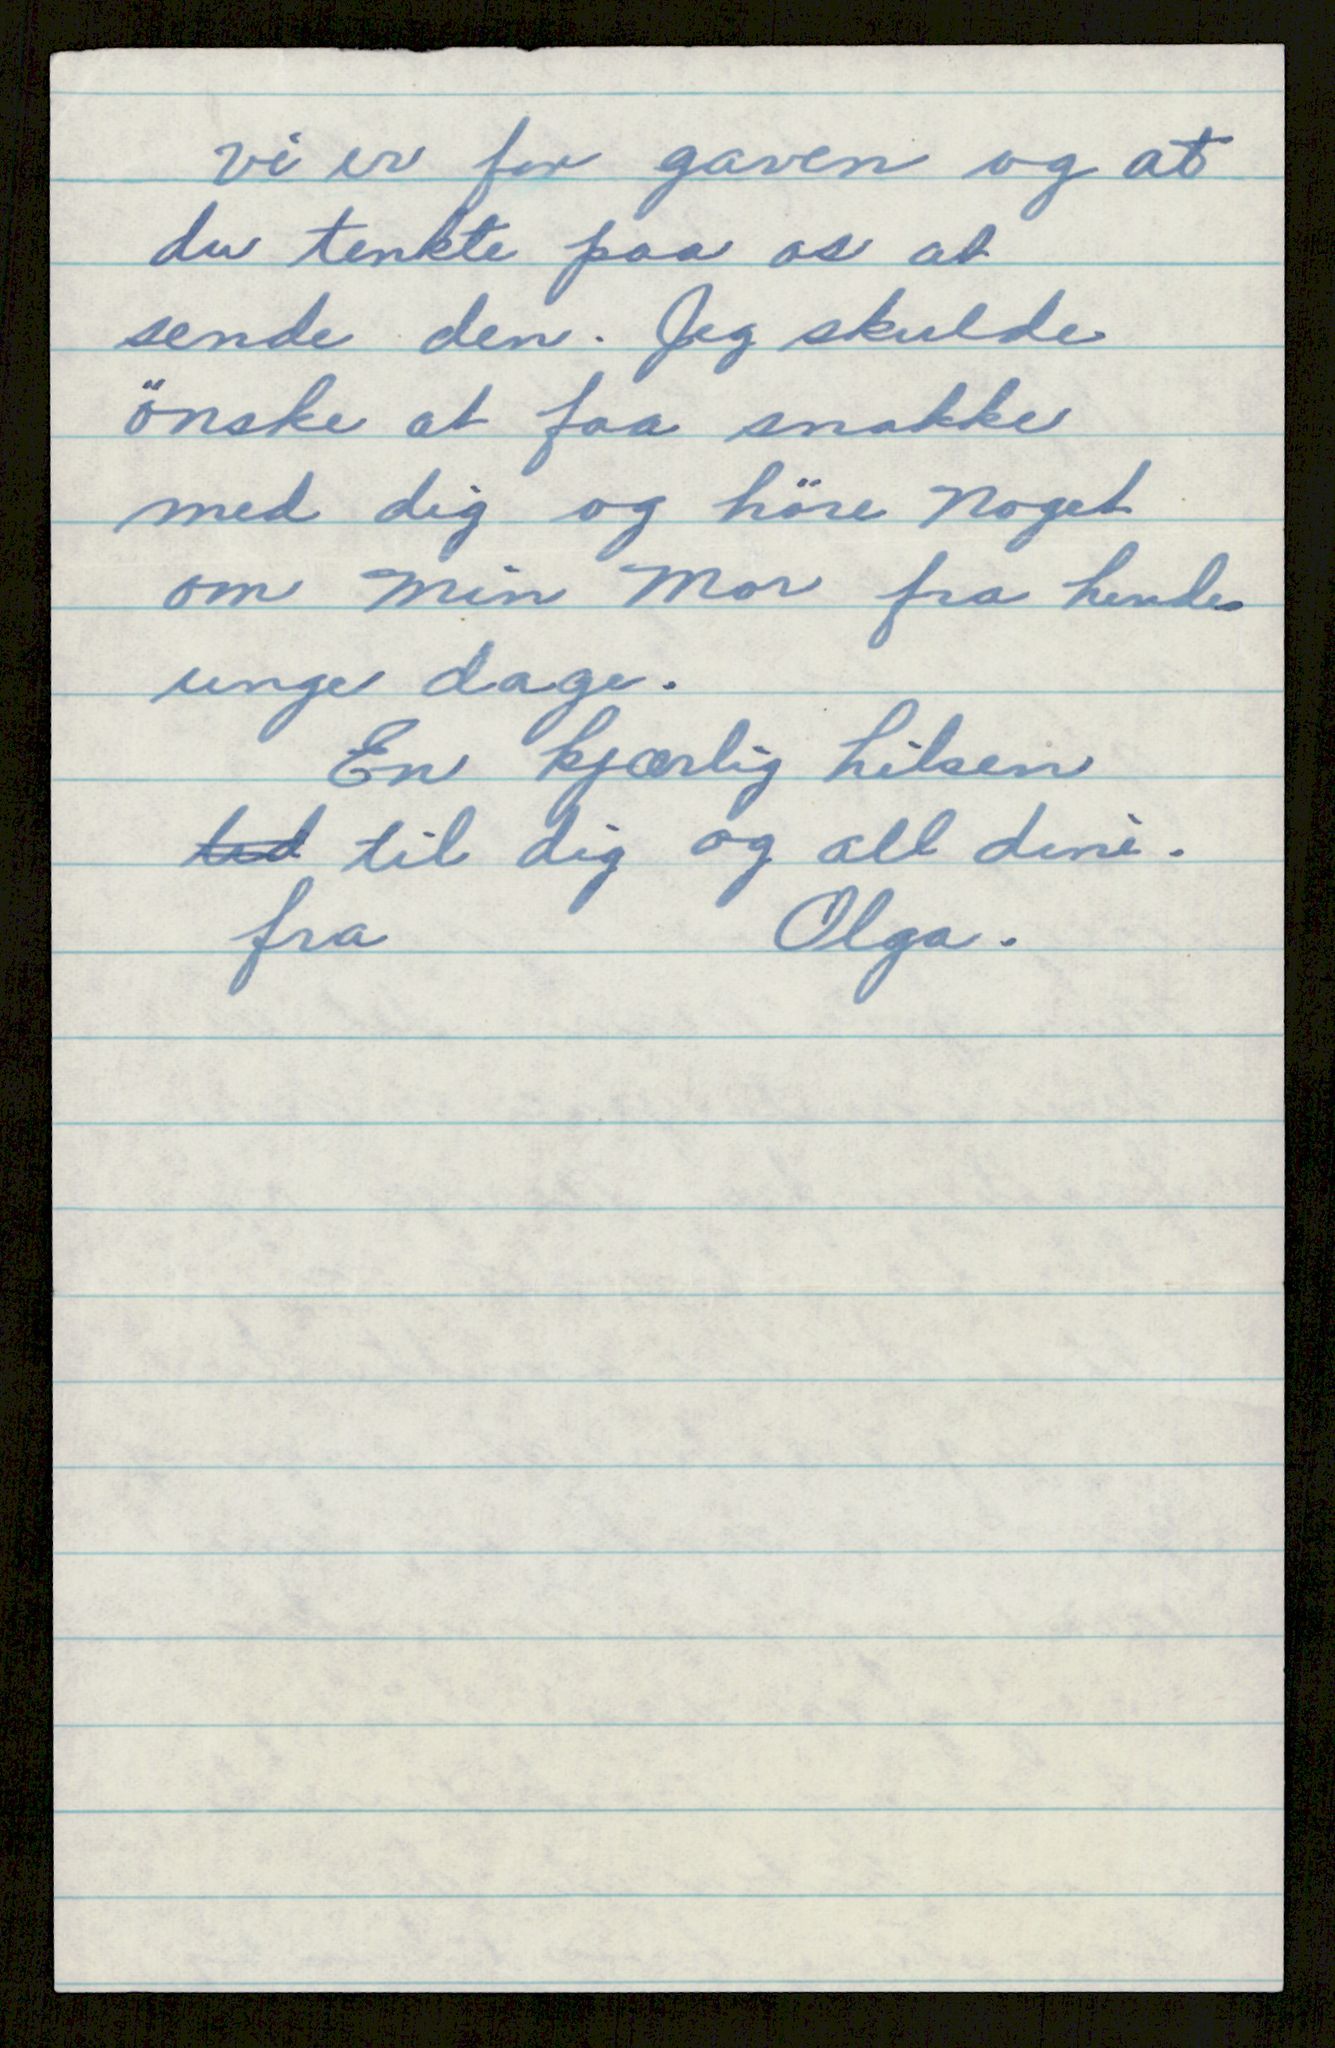 vi er for gaven og at
du tenkte paa os at
sende den. Jeg skulde
önske at faa snakke
med dig og höre noget
om min Mor fra hendes
unge dage.
En kjærlig hilsen
til dig og all dine.
fra Olga.